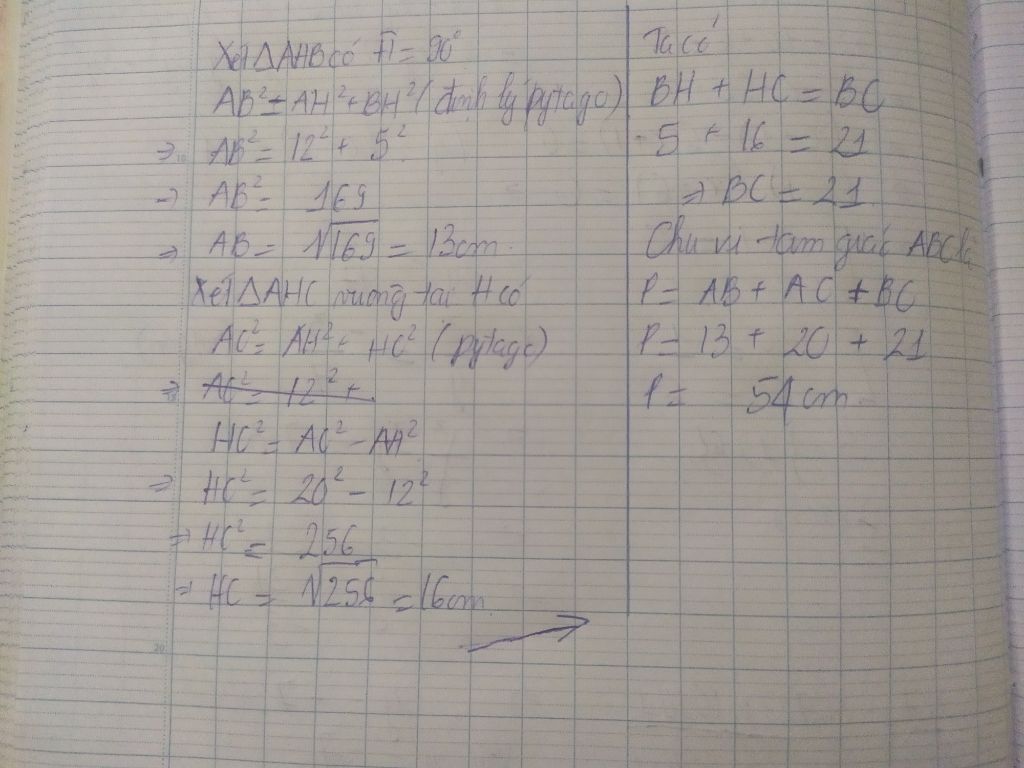 Xét ΔAHB có Ĥ = 90°
AB² = AH² + BH² (định lý pytago)
⇒ AB² = 12² + 5²
⇒ AB² = 169
⇒ AB = √169 = 13cm.
Xét ΔAHC vuông tại H có
AC² = AH² + HC² (pytago)
⇒ AC² = 12² +
HC² = AC² - AH²
⇒ HC² = 20² - 12²
⇒ HC² = 256
⇒ HC = √256 = 16cm
Ta có
BH + HC = BC
5 + 16 = 21
⇒ BC = 21
Chu vi tam giác ABC là
P = AB + AC + BC
P = 13 + 20 + 21
P = 54 cm